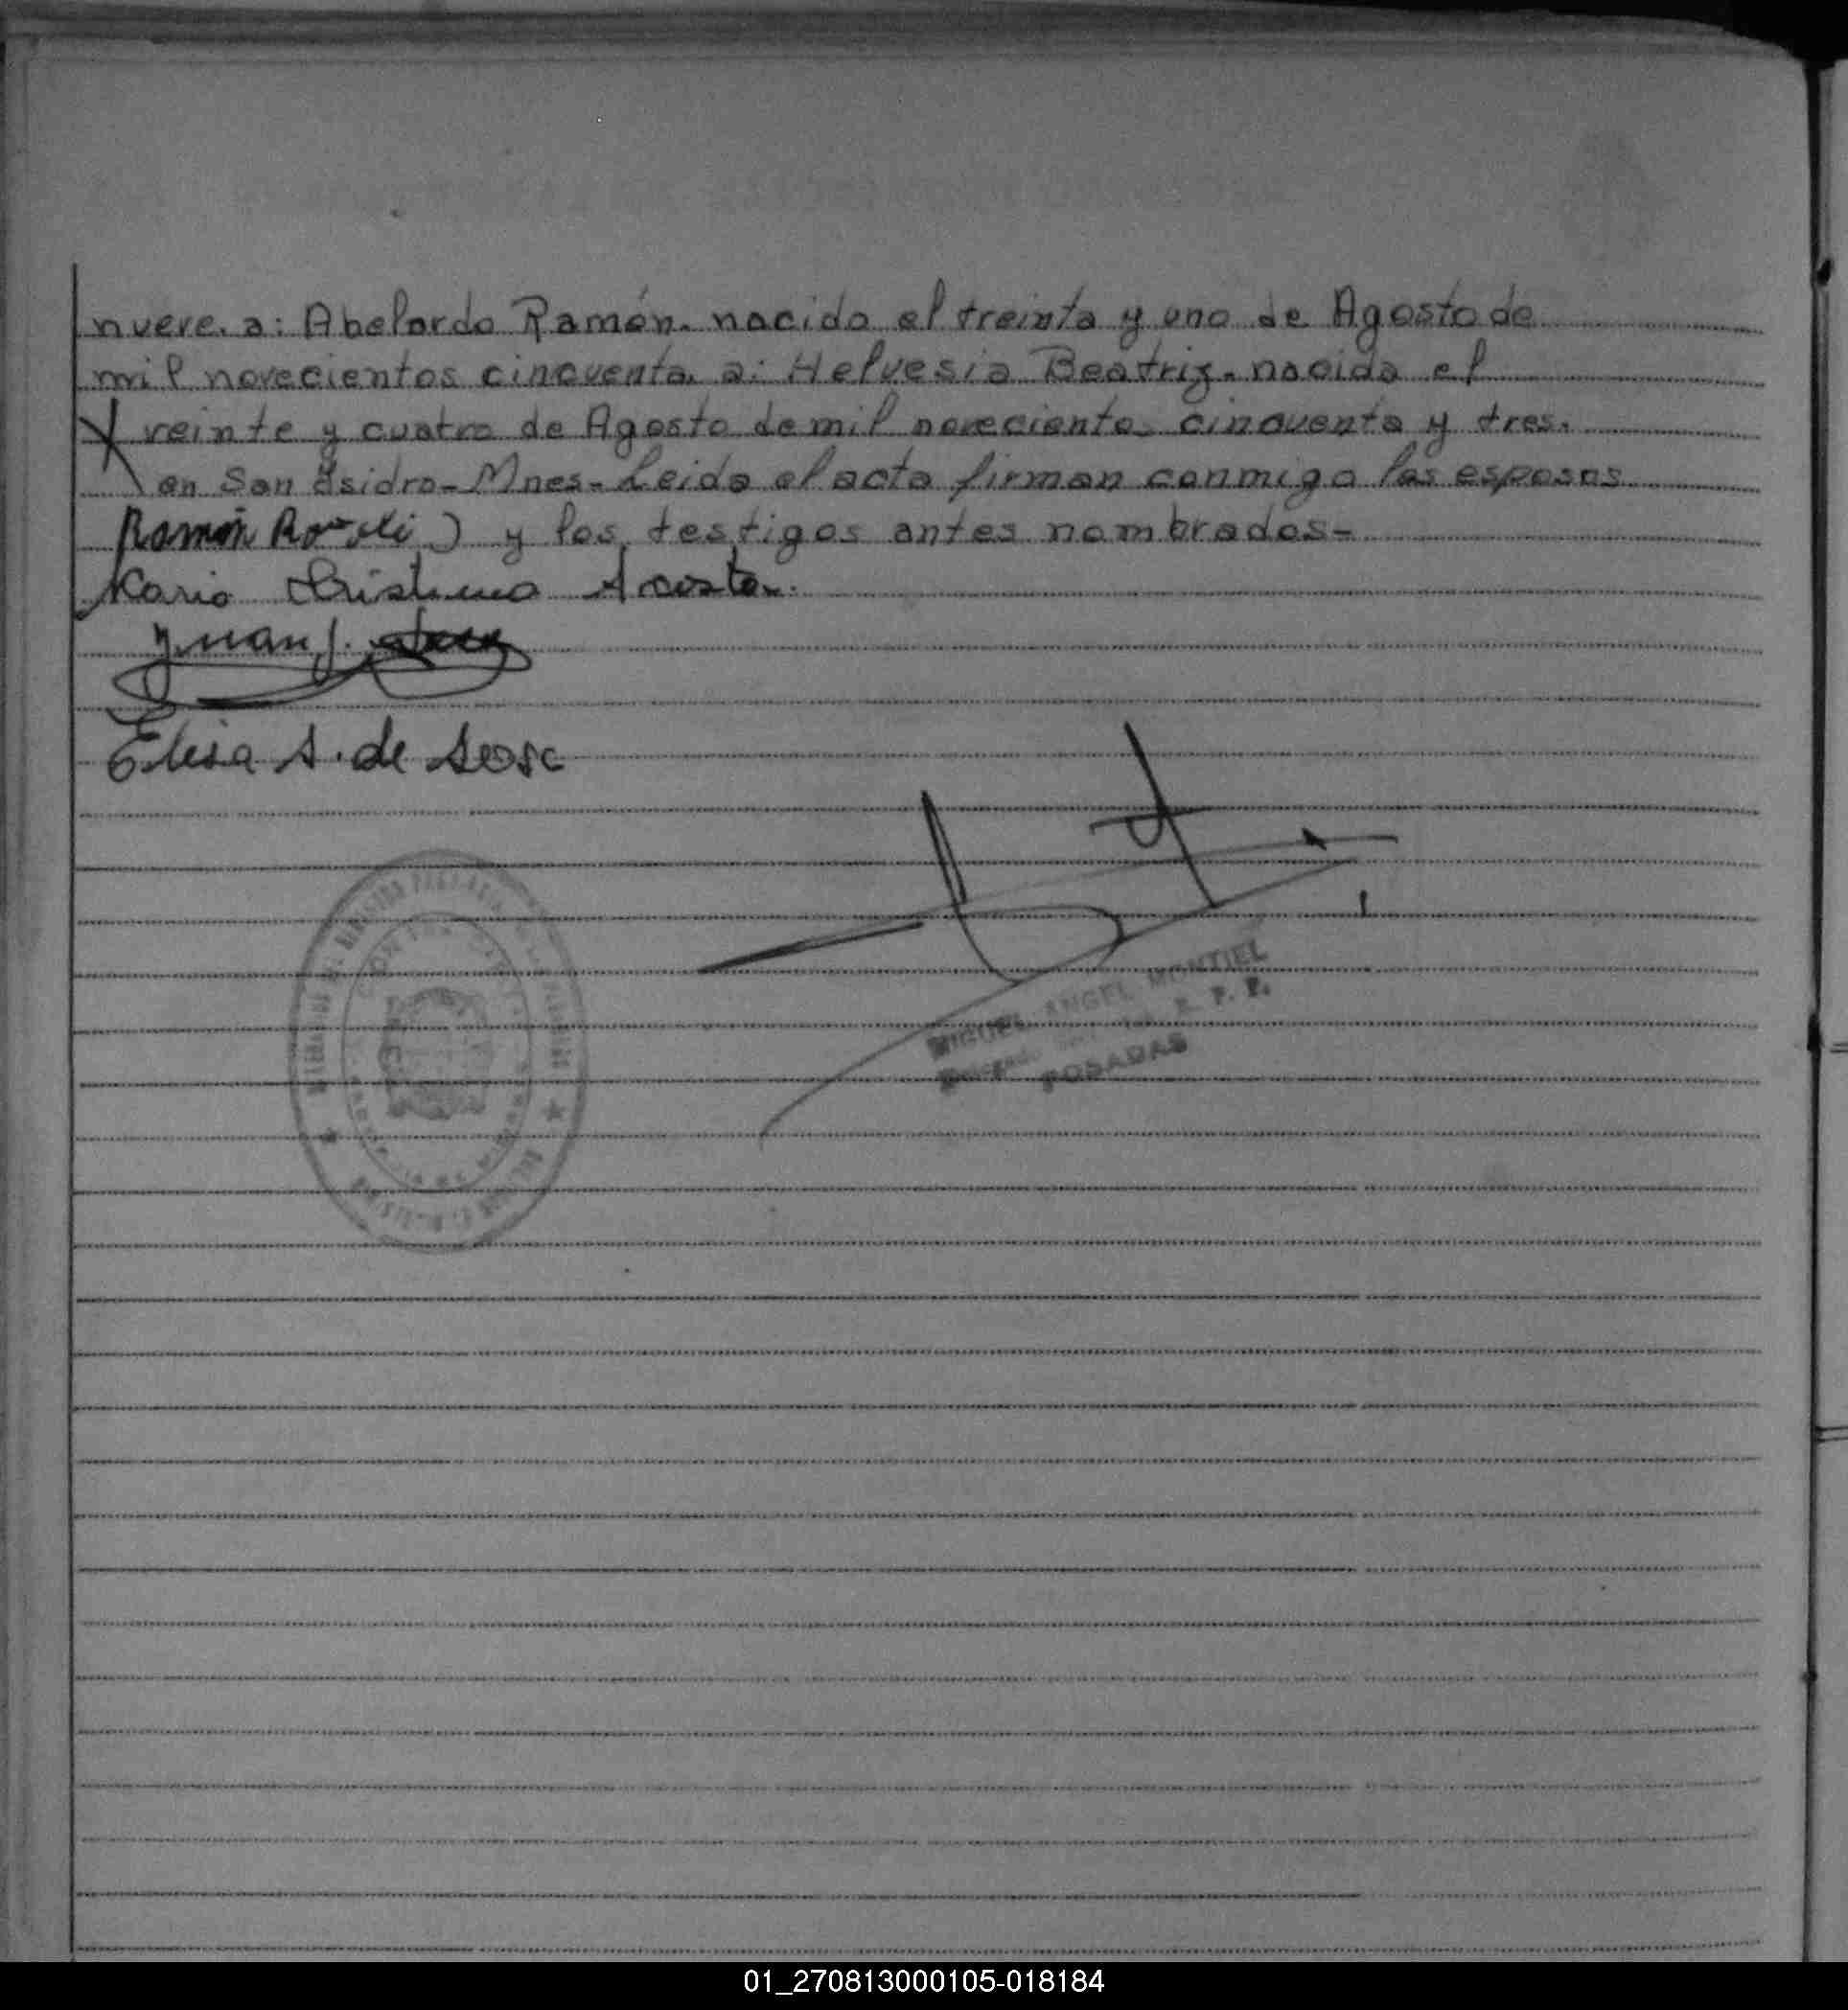 nueve. a: Abelardo Ramón. nacido el treinta y uno de Agosto de
mil novecientos cincuenta. a: Helvesia Beatriz. nacida el
veinte y cuatro de Agosto de mil novecientos cincuenta y tres.
en San Isidro - Mnes - Leida el acta firman conmigo los esposos
Ramón ) y los testigos antes nombrados -
Acosta.
Juan J.
Elisa S. de Sosa
MIGUEL ANGEL MONTIEL
Delegado R. P. P.
POSADAS
01_270813000105-018184